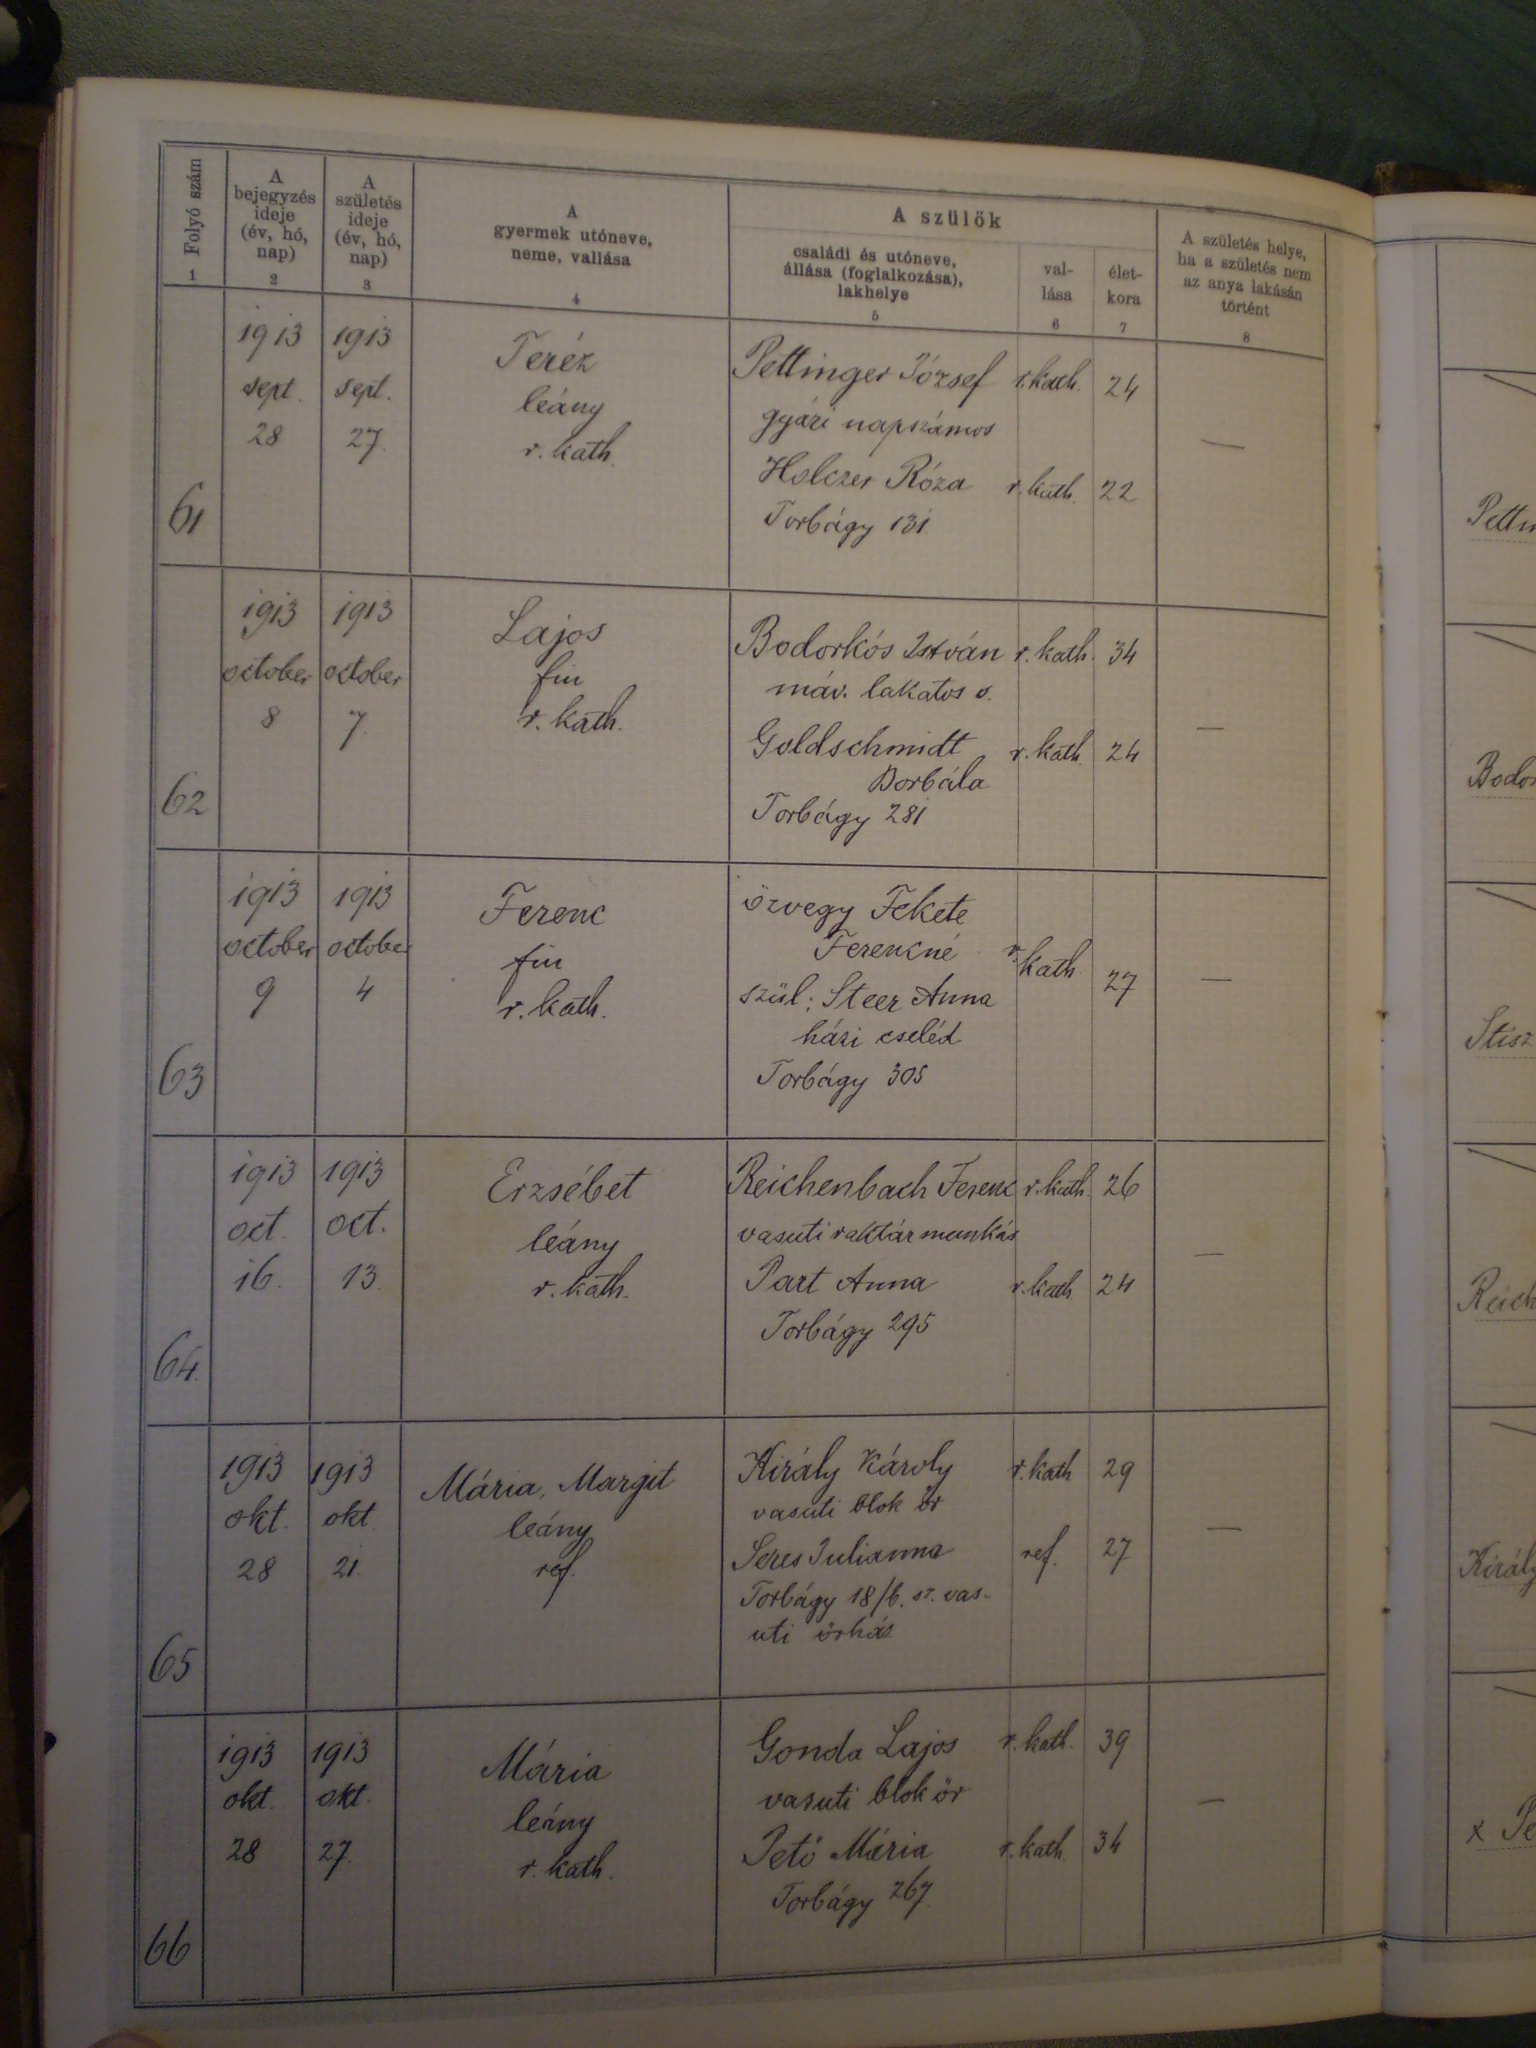 Folyó szám
1
A
bejegyzés
ideje
(év, hó,
nap)
2
A
születés
ideje
(év, hó,
nap)
3
A
gyermek utóneve,
neme, vallása
4
A szülők
családi és utóneve,
állása (foglalkozása),
lakhelye
5
val-
lása
6
élet-
kora
7
A születés helye,
ha a születés nem
az anya lakásán
történt
8
61
1913
sept.
28
1913
sept.
27.
Teréz
leány
r. kath.
Pettinger József r. kath. 24
gyári napszámos
Holczer Róza r. kath. 22
Torbágy 131.
—
62
1913
october
8
1913
october
7.
Lajos
fiu
r. kath.
Bodorkós István r. kath. 34
máv. lakatos s.
Goldschmidt r. kath. 24
Borbála
Torbágy 281
—
63
1913
october
9
1913
october
4
Ferenc
fiu
r. kath.
özvegy Fekete
Ferencné r. kath. 27
szül: Steer Anna
házi cseléd
Torbágy 305
—
64.
1913
oct.
16.
1913
oct.
13.
Erzsébet
leány
r. kath.
Reichenbach Ferenc r. kath. 26
vasuti raktármunkás
Part Anna r. kath. 24
Torbágy 295
—
65
1913
okt.
28
1913
okt.
21.
Mária, Margit
leány
ref.
Király Károly r. kath 29
vasuti blok őr
Seres Julianna ref. 27
Torbágy 18/b. sz. vas-
uti őrház
—
66
1913
okt.
28
1913
okt.
27.
Mária
leány
r. kath.
Gonda Lajos r. kath. 39
vasuti blok őr
Pető Mária r. kath. 34
Torbágy 267.
—
Bodor
Stisz
Reich
Király
x Pe